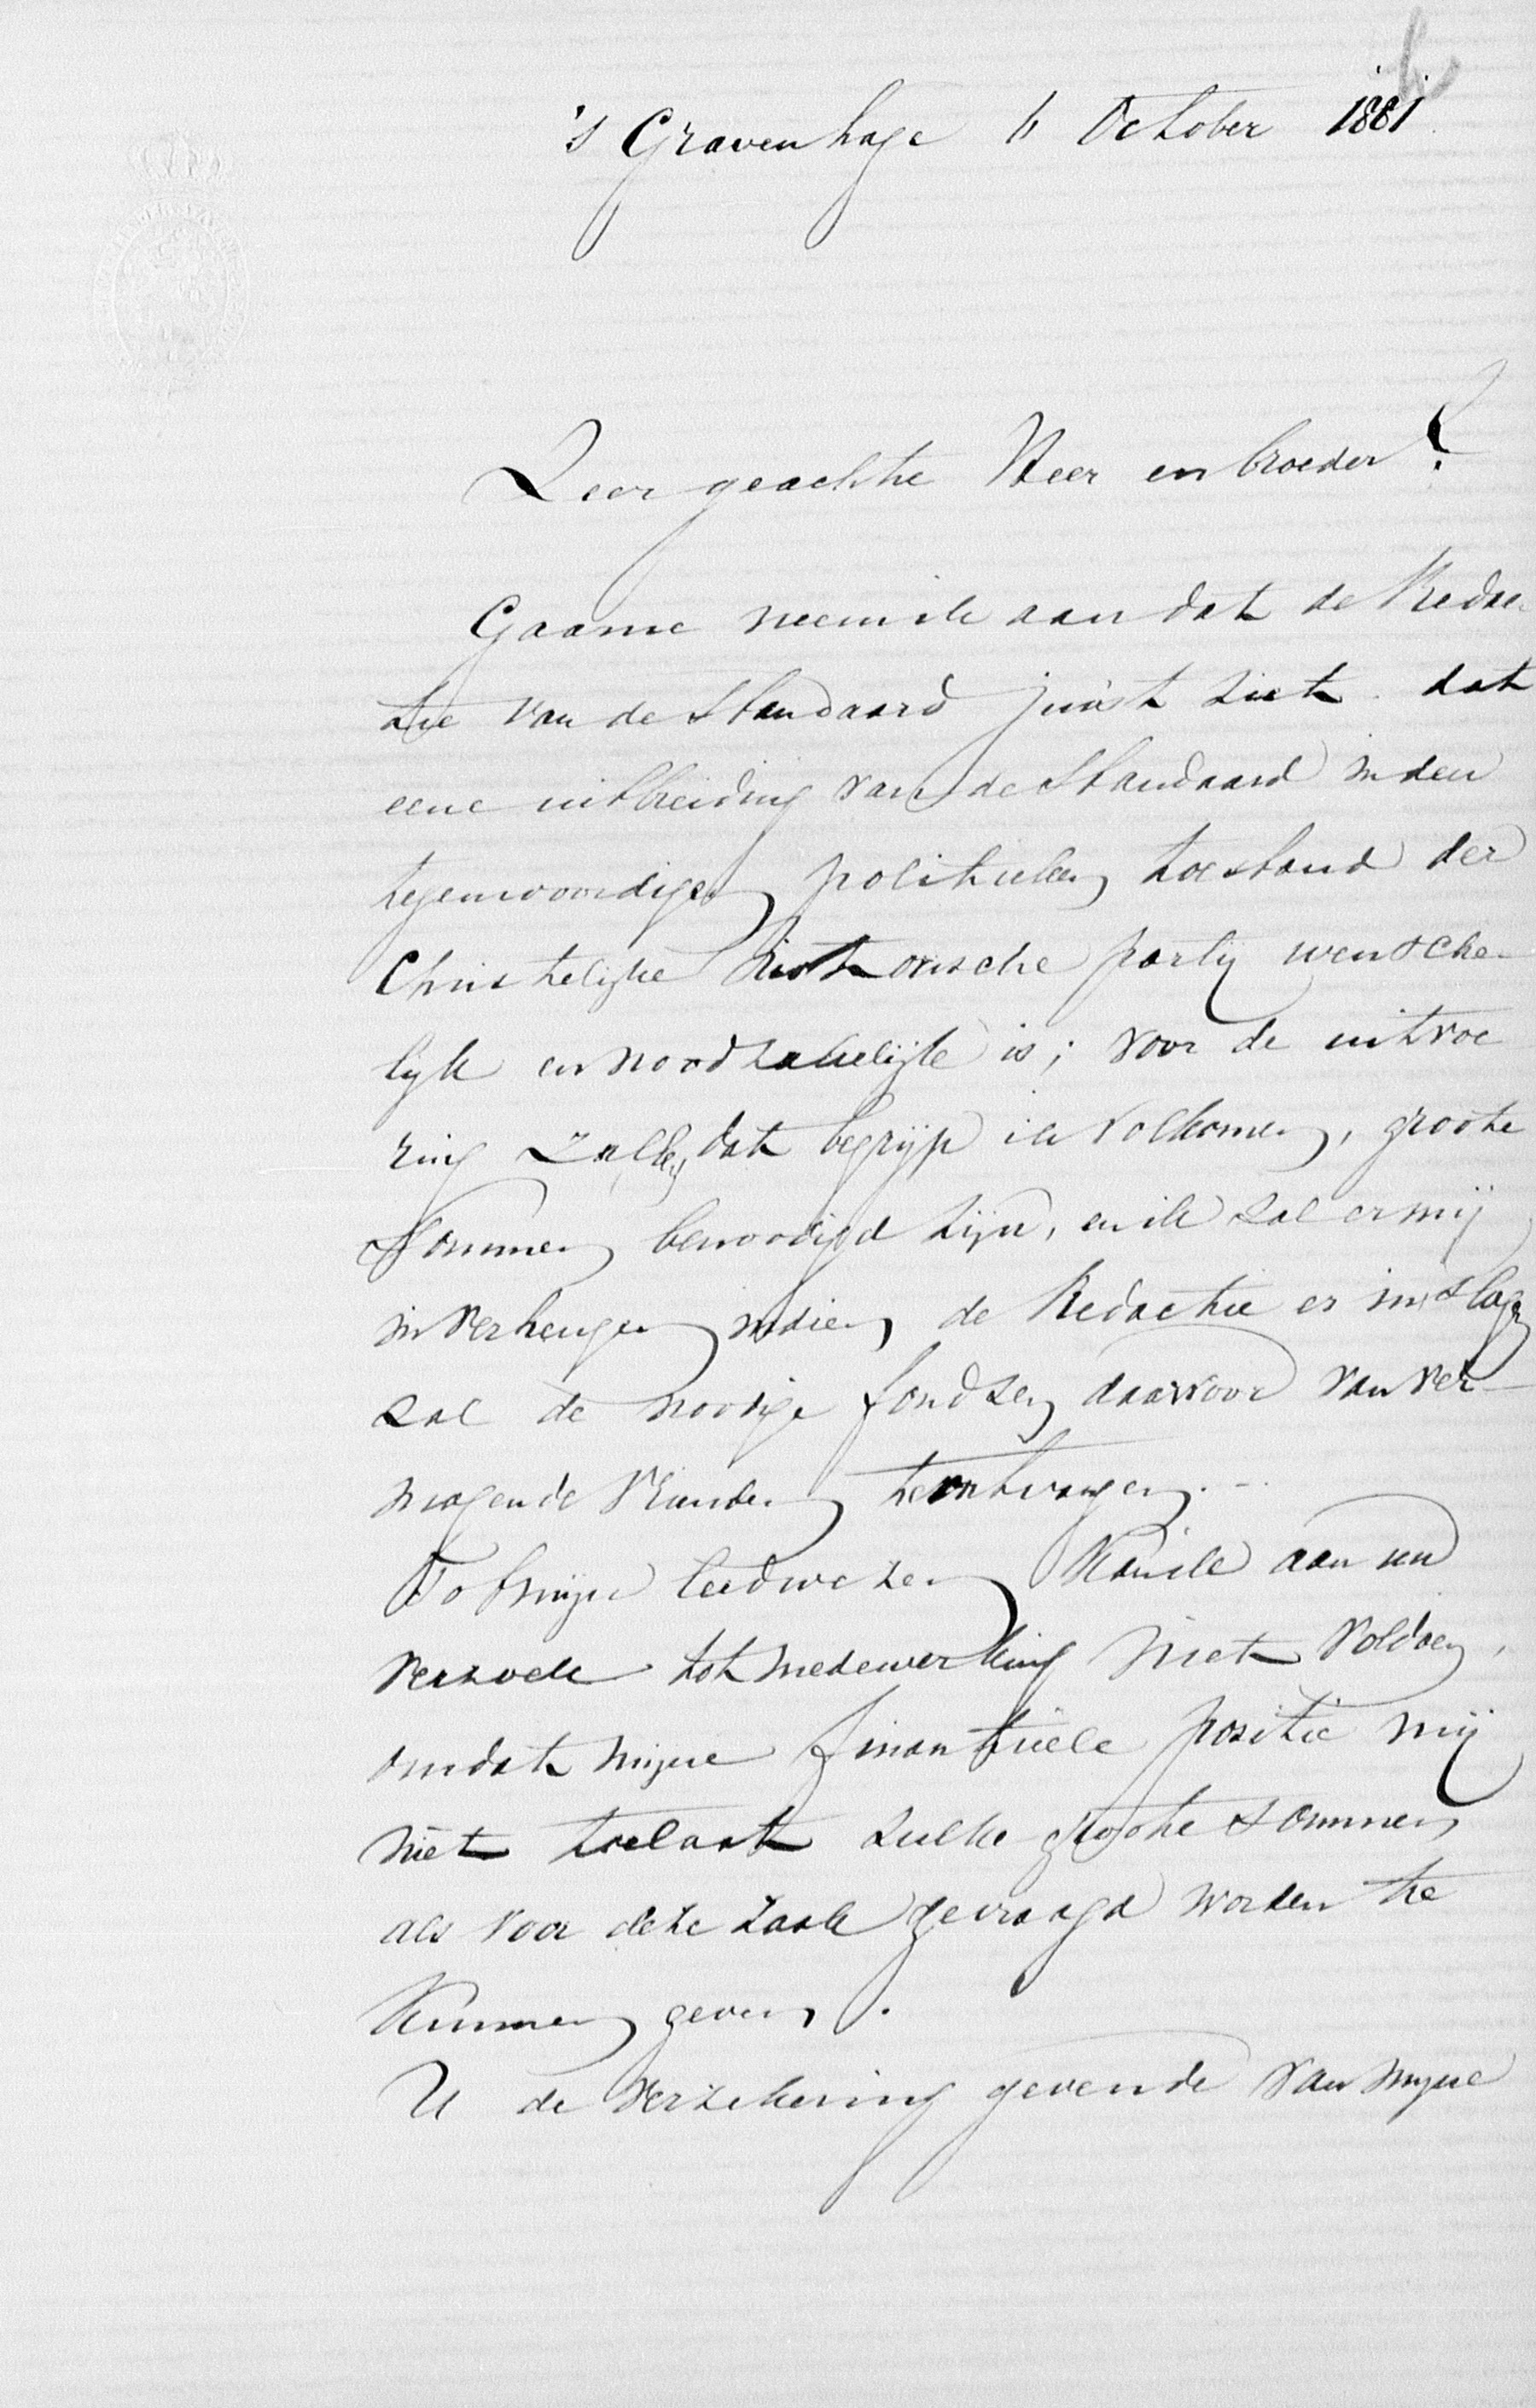 's Gravenhage 6 October 1881
Zeer geachte Heer en broeder!
Gaarne neem ik aan dat de Redac-
tie van de Standaard juist ziet dat
eene uitbreiding van de Standaard in den
tegenwoordigen politieken toestand der
Christelijke historische partij wensche-
lijk en noodzakelijk is; voor de uitvoe
ring zullen, dat begrijp ik volkomen, groote
Sommen benoodigd zijn, en ik zal er mij
in verheugen indien de Redactie er in slagen
zal de noodige fondsen daarvoor van ver-
mogende vrienden te ontvangen. -
Tot mijn leedwezen kan ik aan uw
verzoek tot medewerking niet voldoen,
omdat mijne finantiëele positie mij
niet toelaat zulke groote sommen
als voor deze zaak gevraagd worden te
kunnen geven.
U de verzekering gevende van mijne